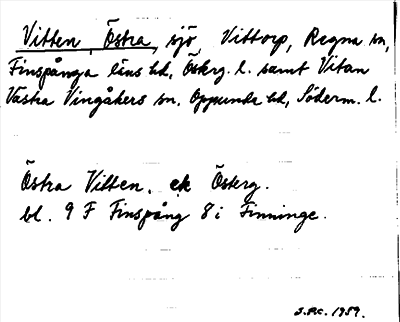 Vitten, Östra, sjö, Vittorp, Regna sn,
Finspånga läns hd, Österg. l. samt Vitan
Västra Vingåkers sn. Oppunda hd, Söderm. l.
Östra Vitten. ek Österg.
bl. 9 F Finspång 8 i Finninge.
1959.